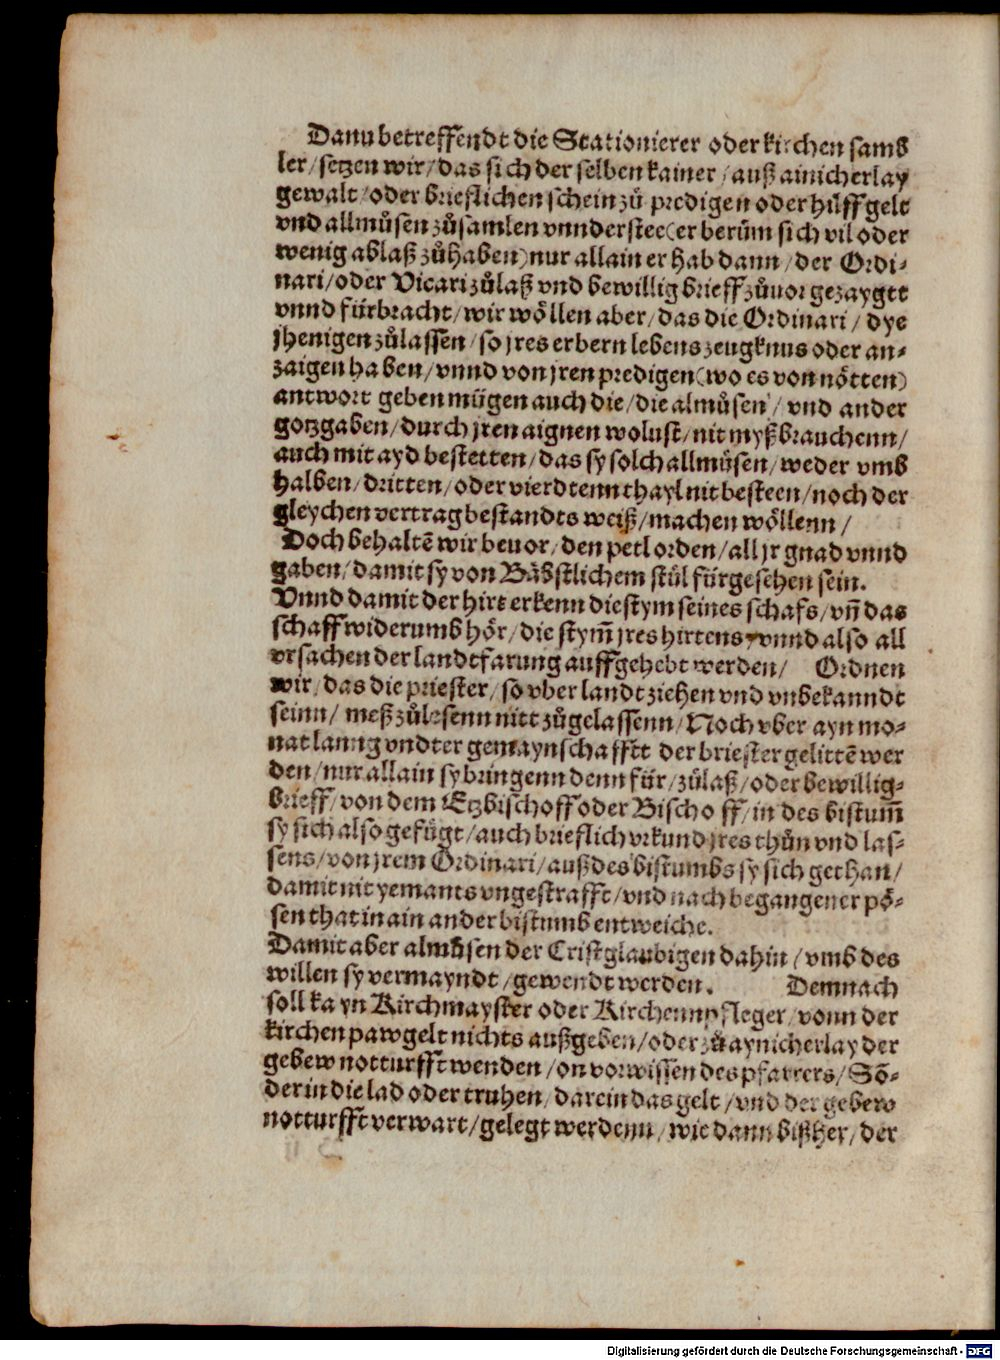 Danu betreffendt die Stationierer oder kirchen samb
ler/setzen wir/das sich der selben kainer/auß ainicherlay
gewalt/oder brieflichen schein zů predigen oder hülffgelt
vnd allmůsen zůsamlen vnnderstee(er berüm sich vil oder
wenig ablaß zůhaben)nur allain er hab dann/der Ordi-
nari/oder Vicari zůlaß vnd bewillig brieff zůuor gezaygtt
vnnd fürbracht/wir wöllen aber/das die Ordinari/dye
jhenigen zůlassen/so jres erbern lebens zeugknus oder an-
zaigen haben/vnnd von jren predigen(wo es von nötten)
antwort geben mügen auch die/die almůsen/vnd ander
gotzgaben/durch jren aignen wolust/nit myßbrauchenn/
auch mit ayd bestetten/das sy solch allmůsen/weder vmb
halben/dritten/oder vierdtenn thayl nit besteen/noch der
gleychen vertrag bestandts weiß/machen wöllenn/
Doch behaltē wir beuor/den petl orden/all jr gnad vnnd
gaben/damit sy von Bäbstlichem stůl fürgesehen sein.
Vnnd damit der hirt erkenn die stym seines schafs/vn̄ das
schaff widerumb hör/die stym̄ jres hirtens/vnnd also all
vrsachen der landtfarung auffgehebt werden/ Ordnen
wir/das die priester/so vber landt ziehen vnd vnbekanndt
seinn/meß zůlesenn nitt zůgelassenn/Noch vber ayn mo-
nat lanng vndter gemaynschafftt der briester gelittē wer
den/nur allain sy bringenn denn für/zůlaß/oder bewillig-
brieff/von dem Etzbischoff oder Bischoff/in des bistum̄
sy sich also gefügt/auch brieflich vrkund jres thůn vnd las-
sens/von jrem Ordinari/auß des bistumbs sy sich gethan/
damit nit yemants vngestrafft/vnd nach begangener pö-
sen that in ain ander bistumb entweiche.
Damit aber almůsen der Cristglaubigen dahin/vmb des
willen sy vermayndt/gewendt werden. Demnach
soll kayn Kirchmayster oder Kirchennpfleger/vonn der
kirchen pawgelt nichts außgeben/oder zů aynicherlay der
gebew notturfft wenden/on vorwissen des pfarrers/Sō-
der in die lad oder truhen/darein das gelt/vnd der gebew
notturfft verwart/gelegt werdenn/wie dann bißher/der
Digitalisierung gefördert durch die Deutsche Forschungsgemeinschaft - DFG